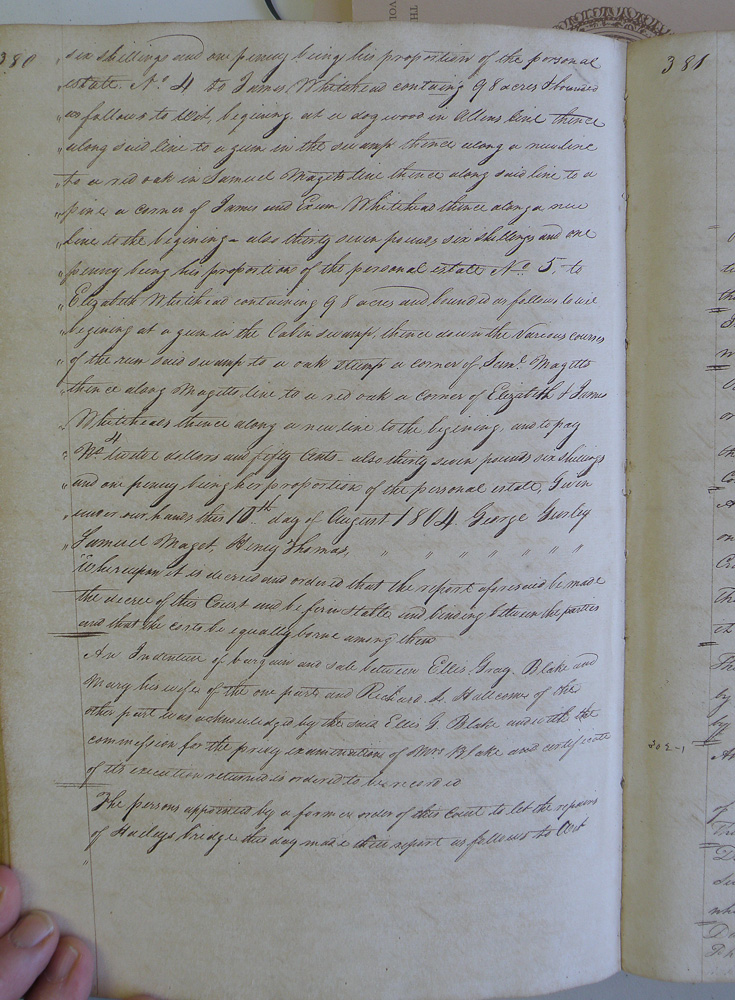 380
" six shillings and one penny being his proportion of the personal
" estate. No. 4 to James Whitehead containg 98 acres & bounded
" as follows to Wit, begining at a dogwood in Allens line thence
" along said line to a gum in the swamp thence along a new line
" to a red oak in Samuel Magets line thence along said line to a
" pine a corner of James and Exum Whitehead thence along a new
" line to the begining – also thirty seven pounds six shillings and one
" penny being his proportion of the personal estate No. 5. to
" Elizabeth Whitehead containing 98 acres and bounded as follows to wit
" begining at a gum in the Cabin swamp, thence down the Various courses
" of the run said swamp to a oak stump a corner of Saml. Magetts
" thence along Magets line to a red oak a corner of Elizabeth & James
" Whiteheads thence along a new line to the begining, and to pay
" No 4 twelve dollars and fifty Cents – also thirty seven pounds six shillings
" and one penny being her proportion of the personal estate, Given
" under our hands this 10th day of August 1804. George Gurley
" Samuel Maget, Henry Thomas, " " " " " " "
Whereupon it is decreed and ordered that the report aforesaid be made
the decree of this Court and be firm stable and binding between the parties
and that the costs be equally borne among them
An Indenture of bargain and sale between Ellis Gray Blake and
Mary his wife of the one part and Richard L. Hallcome of the
other part was acknowledged by the said Ellis G. Blake and with the
commission for the privy examination of Mrs Blake and certificate
of its execution returned is ordered to be recorded
The persons appointed by a former order of this Court to let the repairs
of Haileys bridge this day made their report as follows to Wit
"
381
302-1